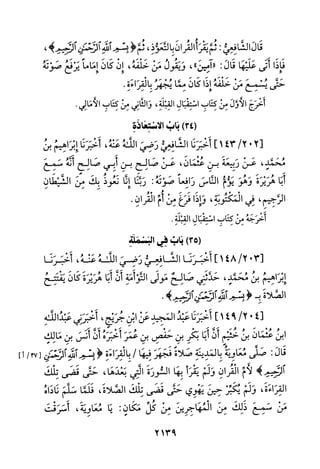 قَالَ الشَّافِعِيُّ: ثُمَّ يَقْرَأُ القُرآنَ بِالتَّعَوُّذِ، ثُمَّ ﴿بِسْمِ اللَّهِ الرَّحْمَنِ الرَّحِيمِ﴾،
فَإِذَا أَتَى عَلَيْهَا قَالَ: «آمِينَ»، وَيَقُولُ مَنْ خَلْفَهُ، إِنْ كَانَ إِمَاماً يَرْفَعُ صَوْتَهُ
حَتَّى يُسْمِعَ مَنْ خَلْفَهُ إِذَا كَانَ مِمَّا يُجْهَرُ بِالْقِرَاءَةِ.
أَخرَجَ الأوَّلَ مِنْ كِتَابِ اسْتِقْبَالِ القِبْلَةِ، وَالثَّانِي مِنْ كِتَابِ الأمَالِي.
(٣٤) بَابُ الاسْتِعَاذَةِ
[١٤٣/٢٠٢] أَخْبَرَنَا الشَّافِعِيُّ رَضِيَ اللَّهُ عَنْهُ، أَخْبَرَنَا إِبْرَاهِيمُ بْنُ
مُحَمَّدٍ، عَنْ رَبِيعَةَ بنِ عُثْمَانَ، عَنْ صَالِحِ بنِ أَبِي صَالِحٍ أَنَّهُ سَمِعَ
أَبَا هُرَيْرَةَ وَهُوَ يَؤُمُّ النَّاسَ رَافِعاً صَوْتَهُ: رَبَّنَا إِنَّا نَعُوذُ بِكَ مِنَ الشَّيْطَانِ
الرَّجِيمِ، فِي الْمَكْتُوبَةِ، وَإِذَا فَرَغَ مِنْ أُمِّ القُرآنِ.
أَخْرَجَهُ مِنْ كِتَابِ اسْتِقْبَالِ القِبْلَةِ.
(٣٥) بَابٌ فِي البَسْمَلَةِ
[١٤٨/٢٠٣] أَخْبَرَنَا الشَّافِعِيُّ رَضِيَ اللَّهُ عَنْهُ، أَخْبَرَنَا
إِبْرَاهِيمُ بْنُ مُحَمَّدٍ، حَدَّثَنِي صَالِحٌ مَوْلَى التَّوْأَمَةِ أَنَّ أَبَا هُرَيْرَةَ كَانَ يَفْتَتِحُ
الصَّلاةَ بِـ ﴿بِسْمِ اللَّهِ الرَّحْمَنِ الرَّحِيمِ﴾.
[١٤٩/٢٠٤] أَخْبَرَنَا عَبْدُ المَجِيدِ عَنْ ابْنِ جُرَيْجٍ، أَخْبَرَنِي عَبْدُ اللَّهِ
ابنُ عُثْمَانَ بنُ خُثَيْمٍ أَنَّ أَبَا بَكْرِ بنِ حَفْصِ بنِ عُمَرَ أَخْبَرَهُ أَنَّ أَنَسَ بنَ مَالِكٍ
قَالَ: صَلَّى مُعَاوِيَةُ بِالمَدِينَةِ صَلاةً فَجَهَرَ فِيهَا / بِالْقِرَاءَةِ ﴿بِسْمِ اللَّهِ الرَّحْمَنِ [٣٧/أ]
الرَّحِيمِ﴾ لأُمِّ الْقُرآنِ وَلَمْ يَقْرَأْ بِهَا السُّورَةَ الَّتِي بَعْدَهَا، حَتَّى قَضَى تِلْكَ
القِرَاءَةَ، وَلَمْ يُكَبِّرْ حِينَ يَهْوِي حَتَّى قَضَى تِلْكَ الصَّلاةَ، فَلَمَّا سَلَّمَ نَادَاهُ
مَنْ سَمِعَ ذَلِكَ مِنَ الْمُهَاجِرِينَ مِنْ كُلِّ مَكَانٍ: يَا مُعَاوِيَةَ، أَسَرَقْتَ
٢١٣٩